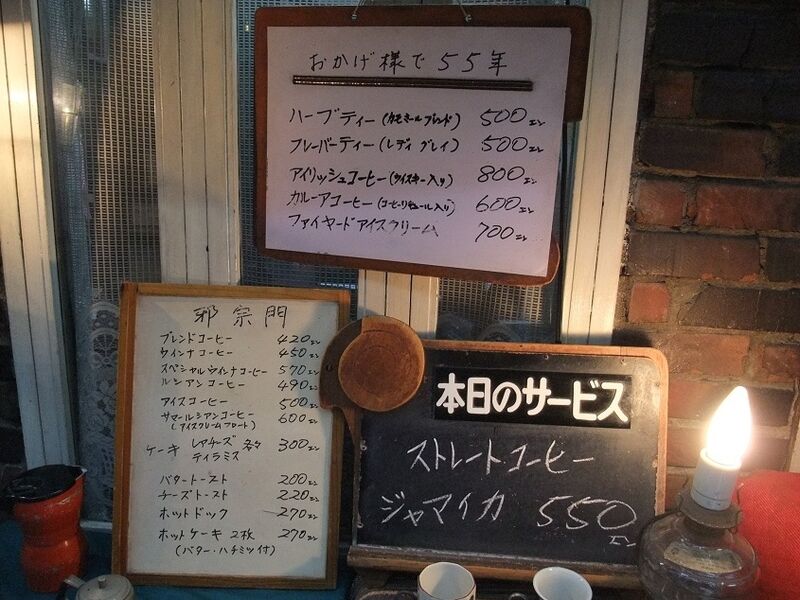 おかげ様で55年
ハーブティー(カモミールブレンド) 500エン
フレーバーティー(レディ グレイ) 500エン
アイリッシュコーヒー(ウイスキー入り) 800エン
カルーアコーヒー(コーヒーリキュール入り) 600エン
ファイヤードアイスクリーム 700エン
邪宗門
ブレンドコーヒー 420エン
ウインナコーヒー 450エン
スペシャルウインナコーヒー 570エン
ルシアンコーヒー 490エン
アイスコーヒー 500エン
サマールシアンコーヒー 600エン
(アイスクリームフロート)
ケーキ レアチーズ 各々 300エン
ティラミス
バタートースト 200エン
チーズトースト 220エン
ホットドック 270エン
ホットケーキ 2枚 270エン
(バター・ハチミツ付)
本日のサービス
ストレートコーヒー
ジャマイカ 550エン